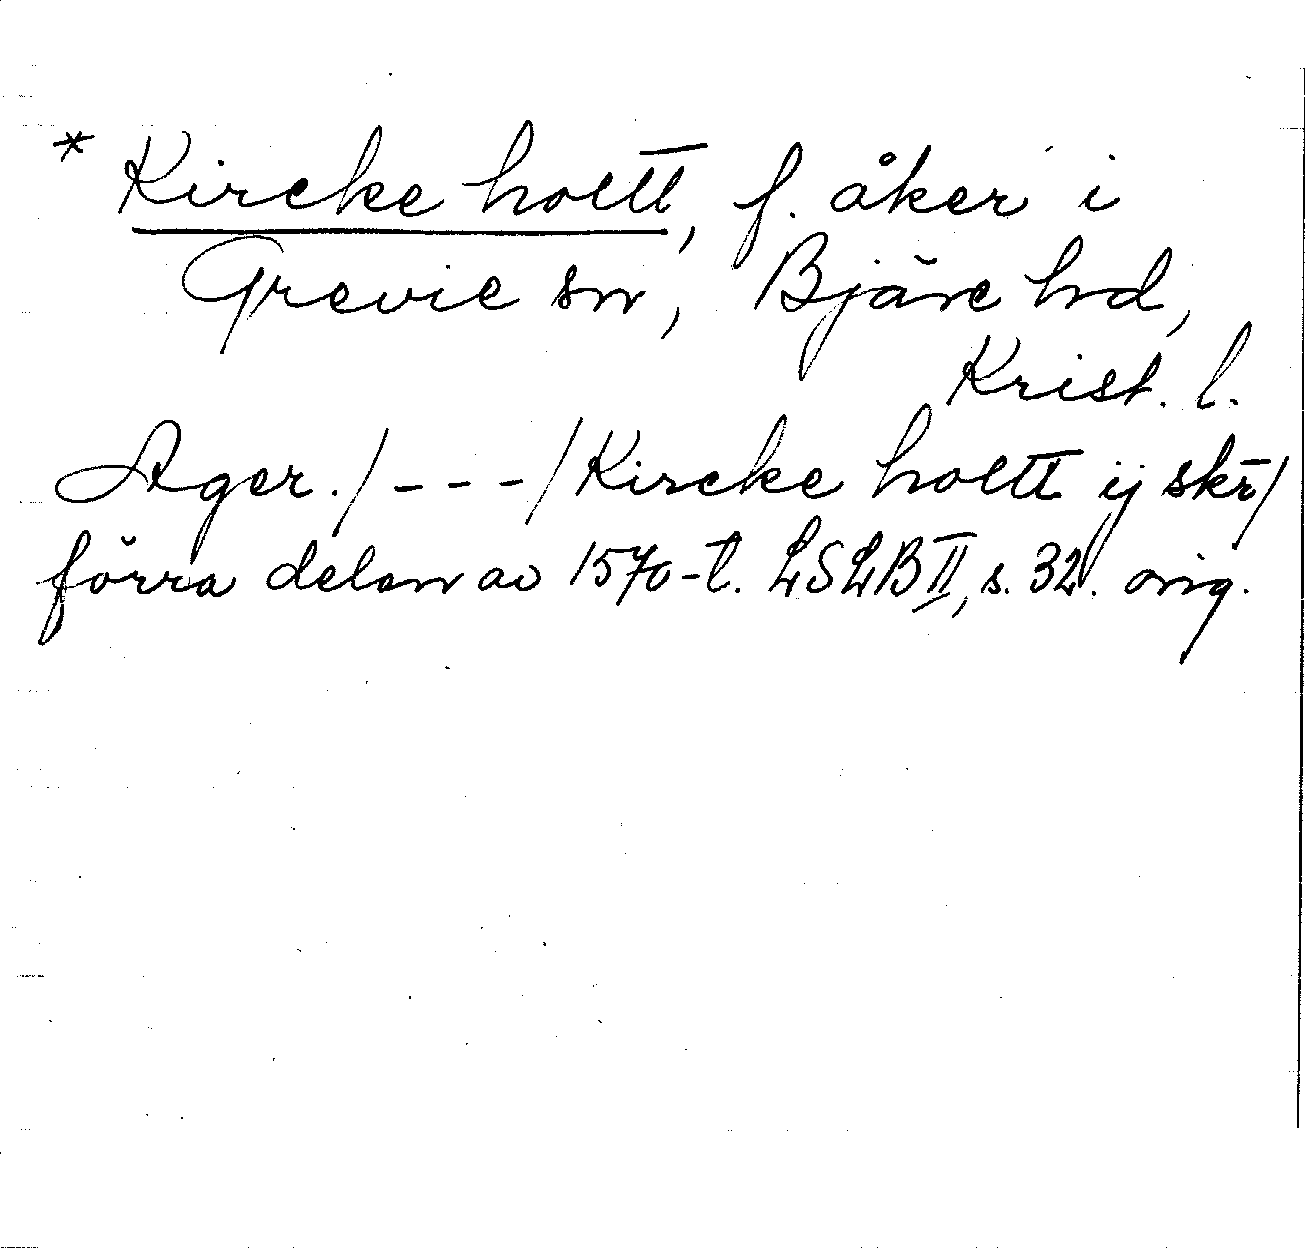 * Kircke holtt, f. åker i
Grevie sn, Bjäre hd,
Krist. l.
Ager./---/Kircke holtt ij skr̄/
förra delen av 1570-t. LSLB II, s. 32. orig.